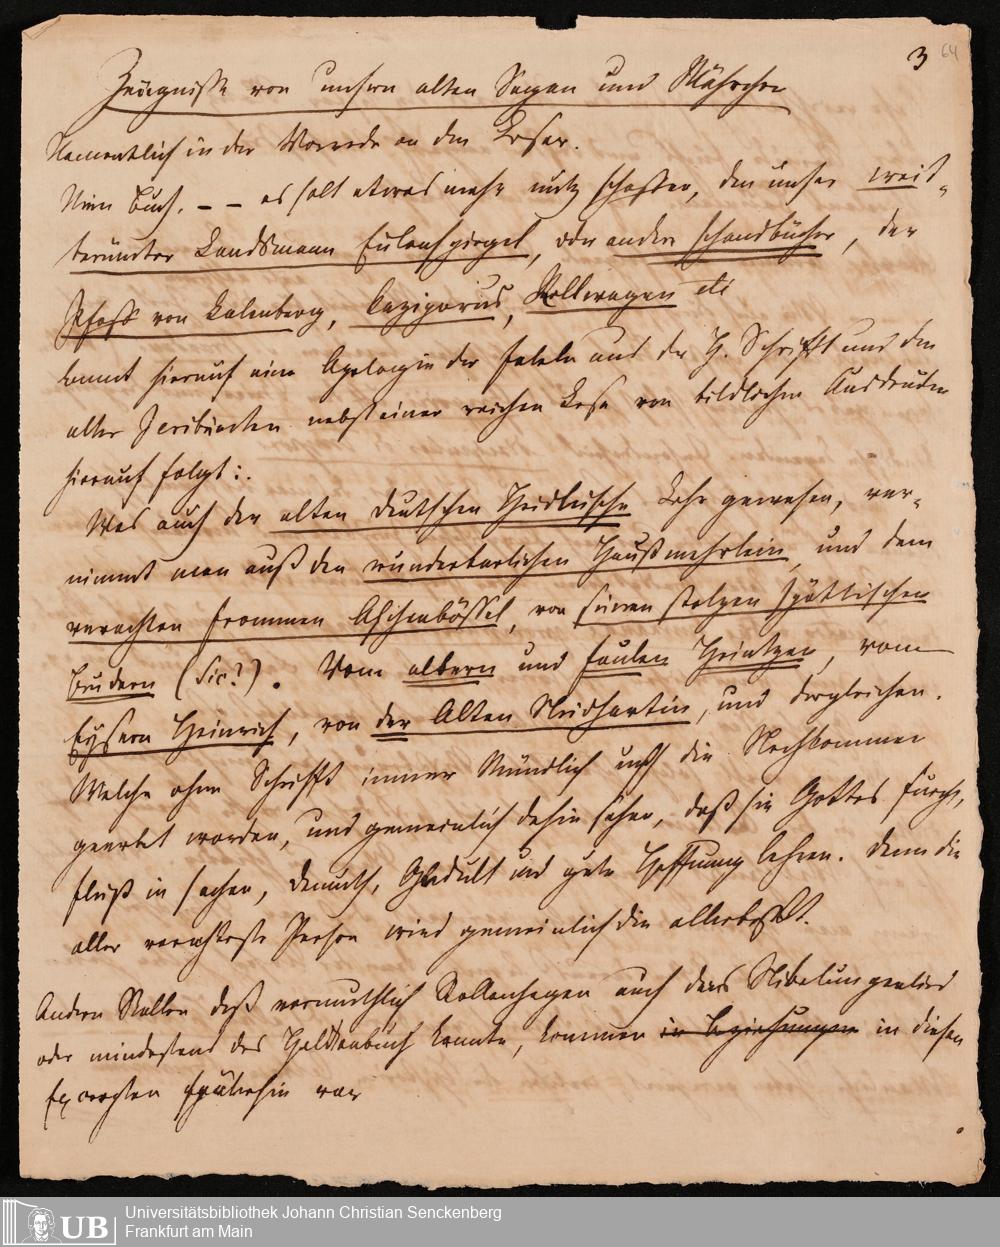 3 64
Zeugnisse von unsern alten Sagen und Mährchen
Namentlich in der Vorrede an den Leser.
Mein Buch. – – es solt etwas mehr nutz schaffen, den unser weit-
berümter Landsmann Eulenspiegel, oder andere schandbücher, der
Pfaff von Kalenberg, Cazigorius, Rollwagen etc
kommt hierauf eine Apologie der Fabeln aus der H. Schrifft und den
alten Scribenten nebst einer reichen Lese von bildlichen Ausdrücken
hierauf folgt:.
Was auch der alten deutschen Heidnische Lehr gewesen, ver-
nimmt man auß den wunderbarlichen Haußmehrlein, und dem
verachten frommen Aschenbössel, von seinen stolzen spöttischen
Brudern (sic?). Vom albern und faulen Heintzen, vom
Eysern Heinrich, von der Alten Neidhartin, und dergleichen.
Welche ohne Schrifft immer Mündlich auff die Nachkommen
geerbet worden, und gemeinlich dahin sehen, daß sie Gottes Furcht,
fleiß in sachen, demuth, Gedult und gute Hoffnung lehren. denn die
aller verachteste Person wird gemeinlich die allerbeste.
Andern Stellen daß vermuthlich Rollenhagen auch das Nibelungenlied
oder mindestens das Heldenbuch kannte, kommen in Beziehungen in diesen
Excerpten späterhin vor
UB Universitätsbibliothek Johann Christian Senckenberg
Frankfurt am Main